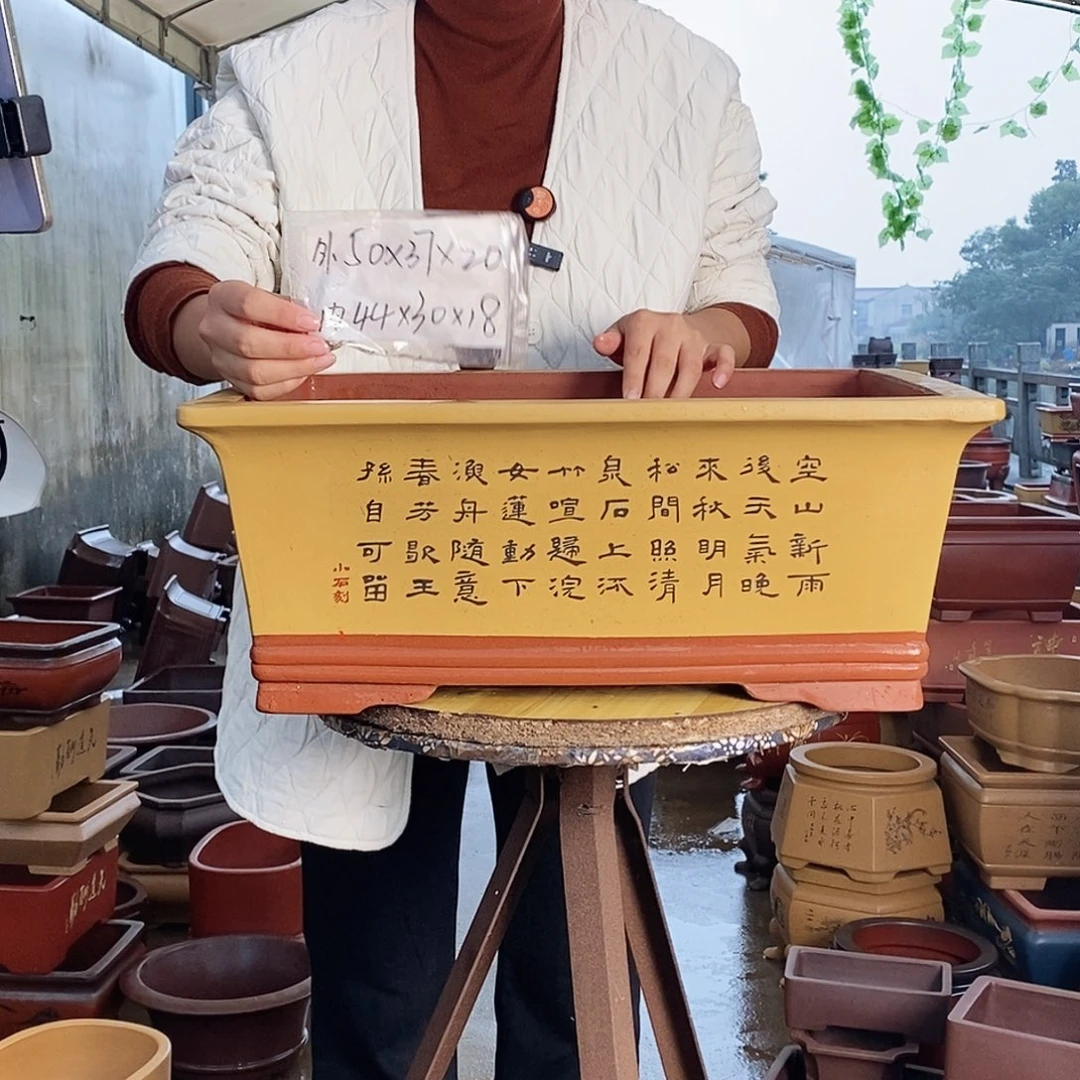 外50×37×20
内44×30×18
空山新雨
後天氣晚
來秋明月
松間照清
泉石上流
竹喧歸浣
女蓮動下
漁舟隨意
春芳歇王
孫自可留
小石刻